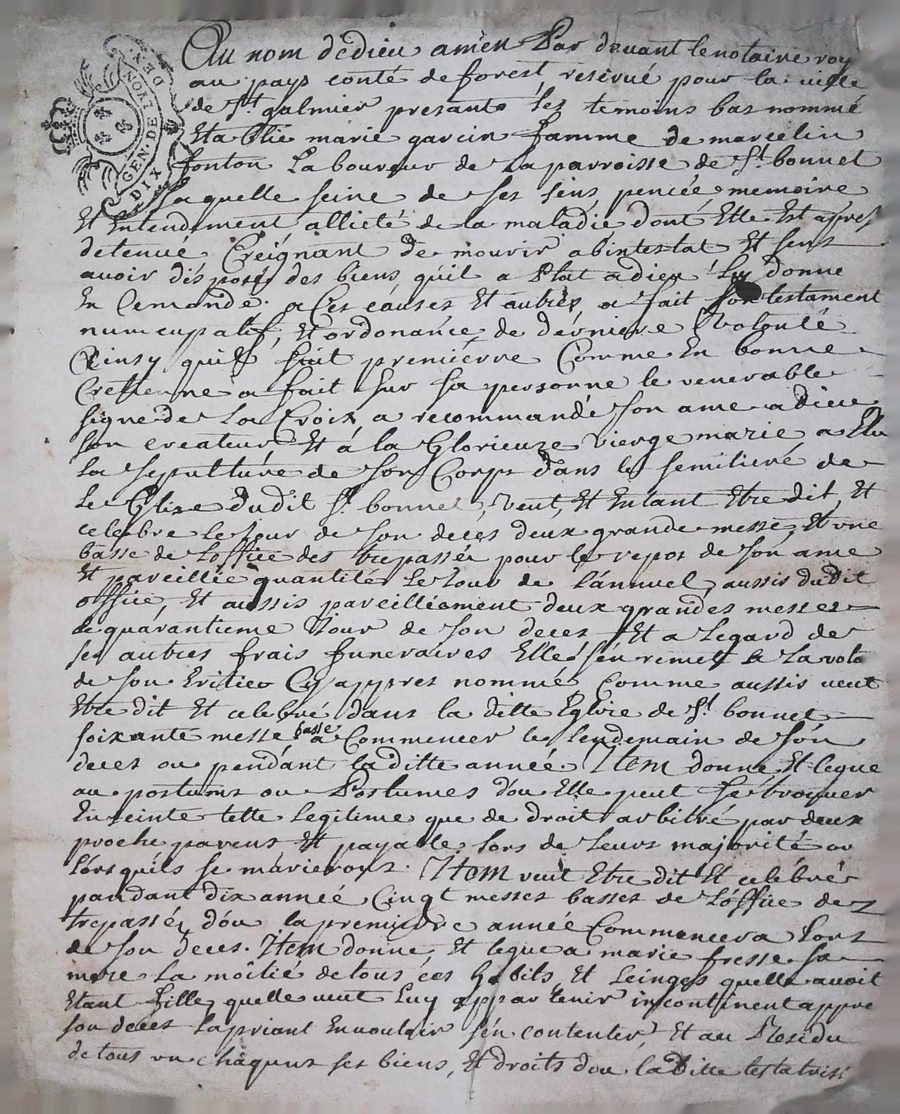 GEN. DE LYON
DIX DEN.
Au nom dedieu amen Par devant lenotaire roy
au pays conté de forest reservé pour la ville
de St. galmier presants les temoins bas nommé
Etablie marie garcin famme de marcelin
fonton Laboureur de La parroisse de St. bonnet
Laquelle seine de ses sens pencée memoire
Et Entendement allicté de la maladie dont Elle Est apres
detenué Creignant de mourir abintestat Et sens
avoir disposé des biens quil a Plut adieu Luy donne
En Cemonde a Ces causes Et autres a fait son testament
numcupatif, Et ordonance de derniere Volonté
Qinsy quil suit premierre Comme En bonne
Cretienne a fait sur sa personne le venerable
signe de La Croix a recommandé Son ame adieu
son createur Et á la Glorieuze Vierge marie a Elu
La sepulture de Son Corps dans le semitiere de
Le Eglise dudit St. bonnet, Veut, Et Entant Etre dit, Et
celebre Le Jour de Son deces deux grande messe, Et une
basse de Loffice des trepassée pour le repos de Son ame
Et pareillée quantité Le Jour de Lannuel, aussis dudit
office, Et aussis pareilleament deux grandes messes
Le quarantieme Jour de Son deces Et a Legard de
ses autres frais funeraires Elle s'en remet a La volo
de Son Eritier Cy appres nommé Comme aussis veut
Etre dit Et celebré dans la ditte Eglise de St. bonnet
soixante messe basse a Commencer le Lendemain de Son
deces ou pendant laditte année Item donne Et legue
au postume ou Postumes dou Elle peut se troquer
Enceinte telle Legitime que de droit arbitré par deux
proche parens Et payable lors de Leurs majorité ou
Lorsquils se marieront. Item veut Etre dit Et celebré
pandant dix année Cinqt messes basses de Loffice des
trepassée, dou la premiere année Commencera Lors
de Son deces. Item donne, Et legue a marie fresse sa
mere La moitié de tous ces habits Et Leinges quelle avoit
Etant fille, quelle veut Luy appartenir incontinent appre
son deces Lapriant Envouloir s'en contenter, Et au Residu
de tous un chaquns ses biens, Et droits dou la Ditte testatrisi